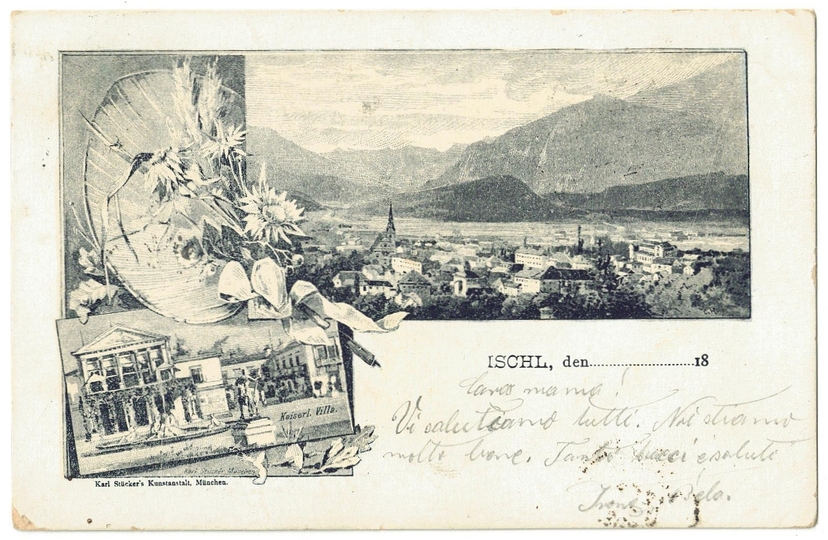 Kaiserl. Villa.
Karl Stücker's Kunstanstalt, München.
ISCHL, den..........................18
mama!
Vi salutiamo tutti. Noi stiamo
molto bene. Tanti baci e saluti